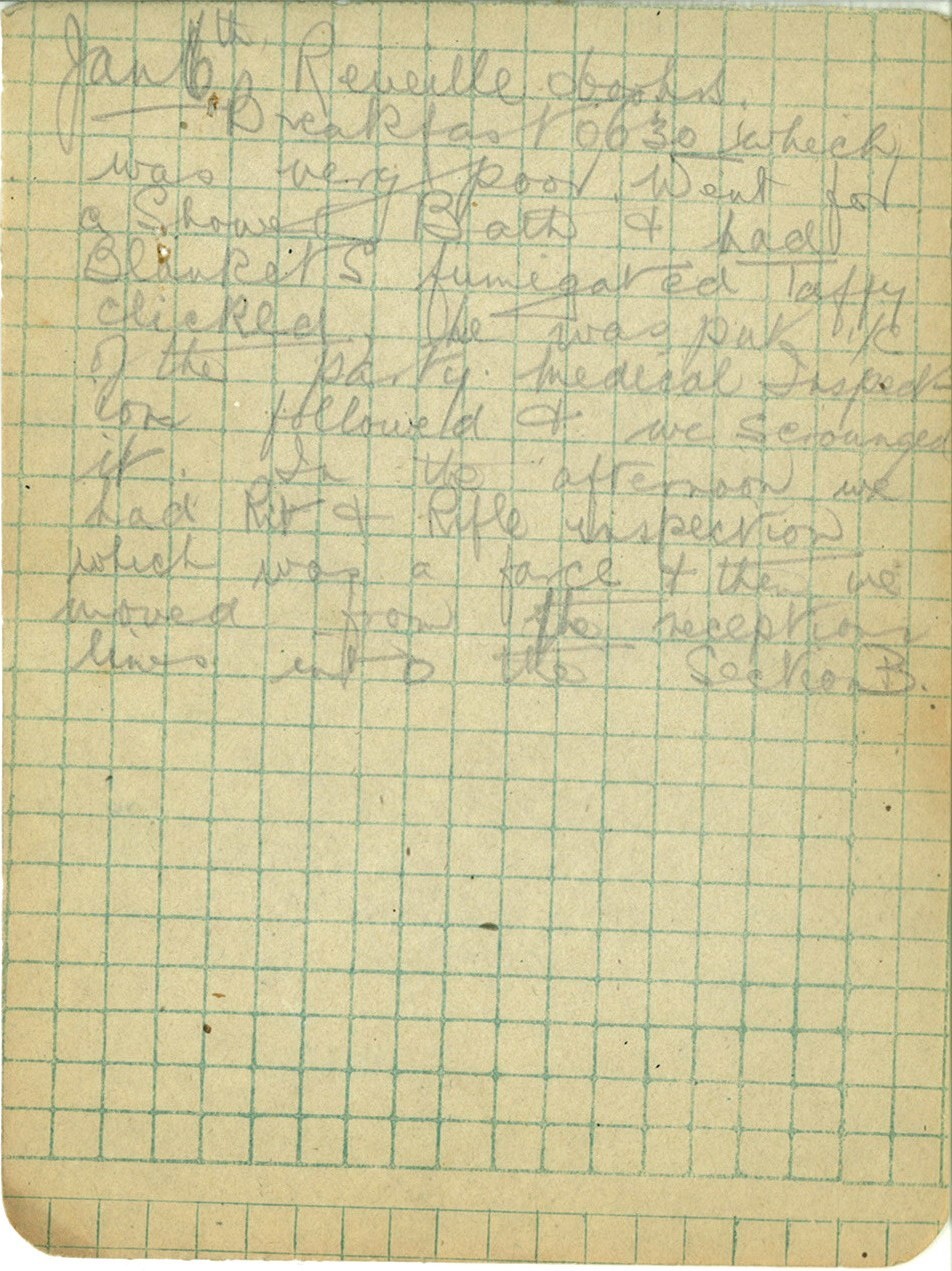 Jan 6th, Reveille 0600 hrs.
Breakfast 0630 which
was very poor. Went for
a Shower Bath & had
Blankets fumigated Taffy
clicked. He was put i/c
of the party. Medical Inspect
ion followed & we scrounged
it. In the afternoon we
had Kit & Rifle inspection
which was a farce & then we
moved from the reception
lines into the Section B.